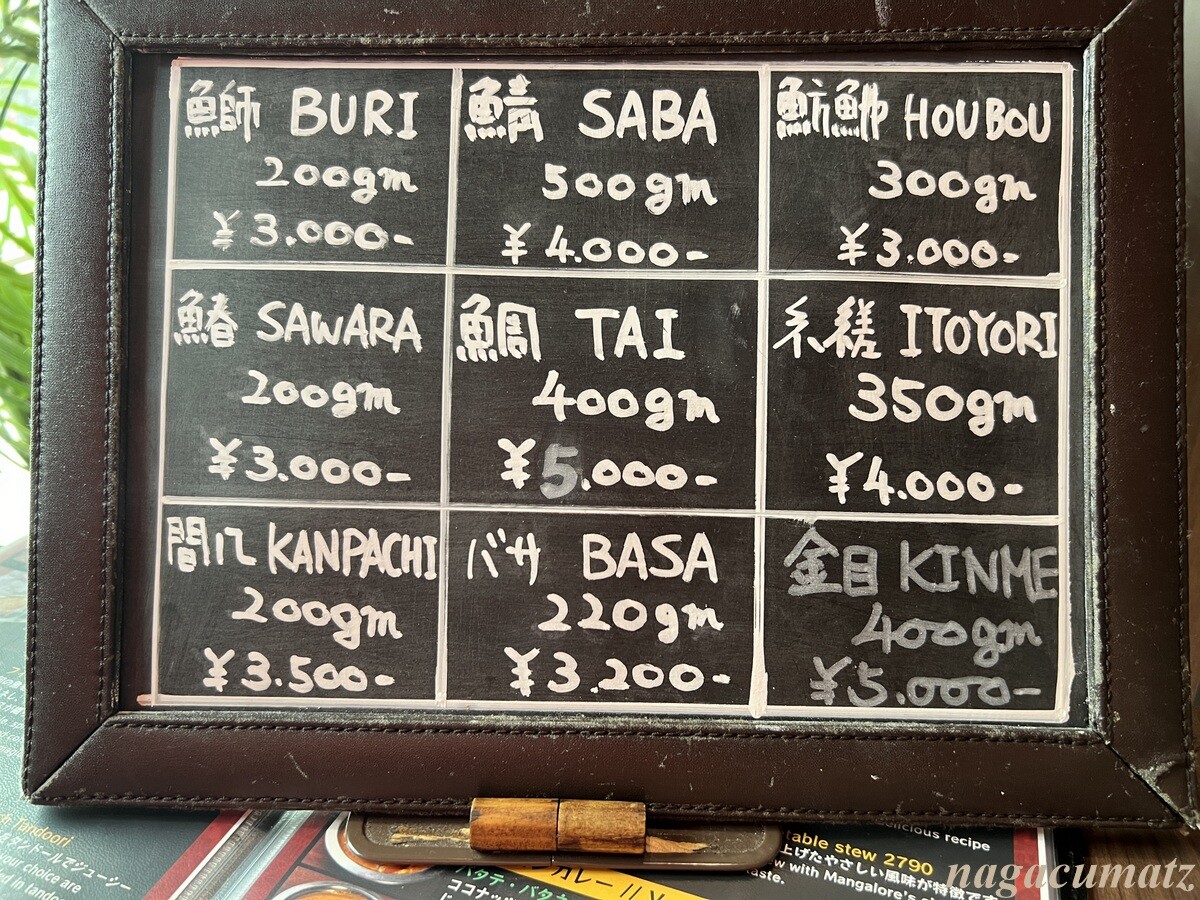 鰤 BURI
200gm
¥3.000-
鯖 SABA
500gm
¥4.000-
魴鮄 HOUBOU
300gm
¥3.000-
鰆 SAWARA
200gm
¥3.000-
鯛 TAI
400gm
¥5.000-
糸縒 ITOYORI
350gm
¥4.000-
間八 KANPACHI
200gm
¥3.500-
バサ BASA
220gm
¥3.200-
金目 KINME
400gm
¥5.000-
Tandoori
タンドールでジューシー
your choice are
ed in tando
バタテ・バタ
ココナッ
カレー
delicious recipe
table stew 2790
上げたやさしい風味が特徴です
with Mangalore's
taste.
nagacumatz